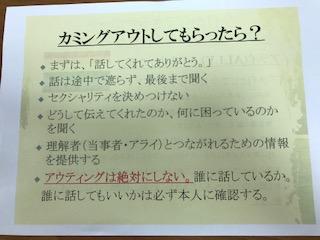 カミングアウトしてもらったら？
まずは、「話してくれてありがとう。」
話は途中で遮らず、最後まで聞く
セクシャリティを決めつけない
どうして伝えてくれたのか、何に困っているのか
を聞く
理解者（当事者・アライ）とつながれるための情報
を提供する
アウティングは絶対にしない。誰に話しているか。
誰に話してもいいかは必ず本人に確認する。